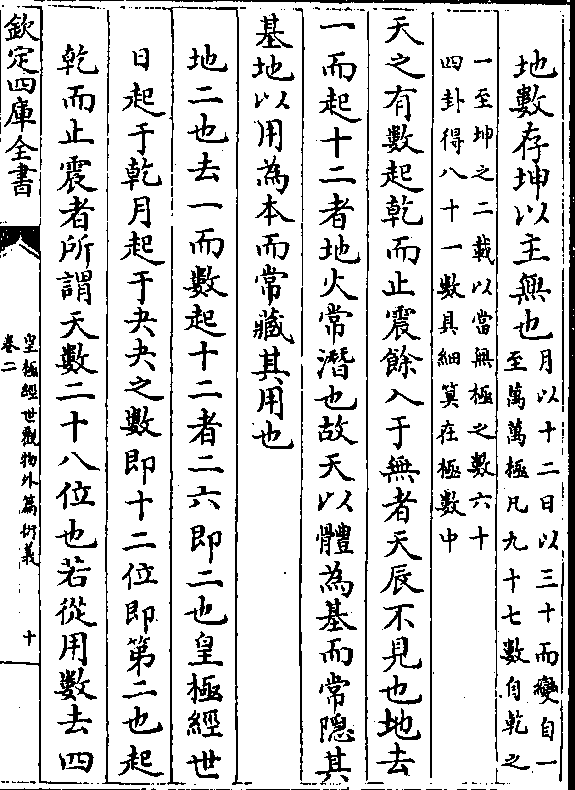 地數存坤以主無也月以十二日以三十而變自一
至萬萬極凡九十七數自乾之
一至坤之二載以當無極之數六十
四卦得八十一數具細算在極數中
天之有數起乾而止震餘入于無者天辰不見也地去
一而起十二者地火常潛也故天以體為基而常隱其
基地以用為本而常藏其用也
地二也去一而數起十二者二六即二也皇極經世
日起于乾月起于夬夬之數即十二位即第二也起
乾而止震者所謂天數二十八位也若從用數去四
欽定四庫全書
皇極經世觀物外篇衍義
卷二
十